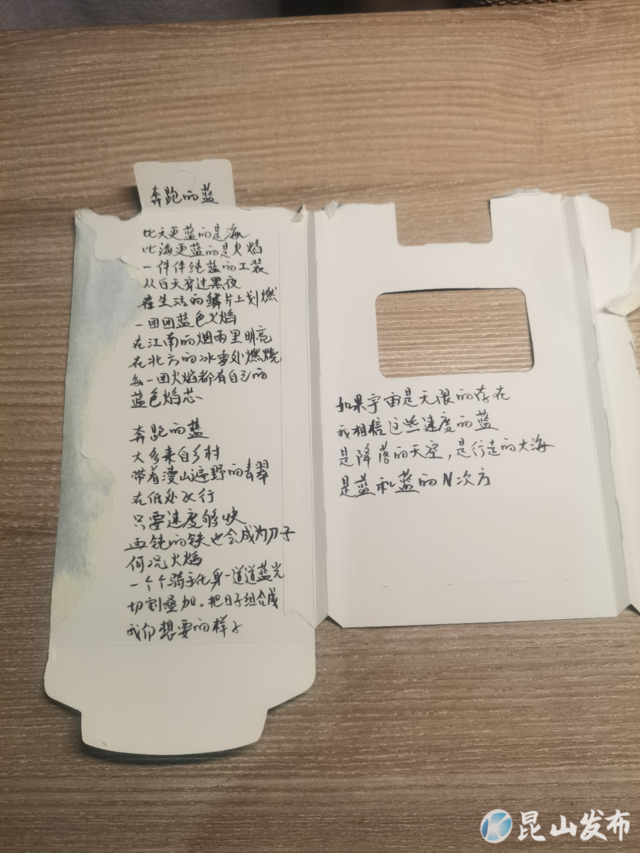 奔跑的蓝
比天更蓝的是海
比海更蓝的是火焰
一件件纯蓝的工装
从白天穿过黑夜
在生活的鳞片上划燃
一团团蓝色火焰
在江南的烟雨里明亮
在北方的冰雪外燃烧
每一团火焰都有自己的
蓝色焰芯
奔跑的蓝
大多来自乡村
带着漫山遍野的青翠
在低处飞行
只要速度够快
再钝的铁也会成为刀子
何况火焰
一个个骑手化身一道道蓝光
切割叠加，把日子组合成
我们想要的样子
如果宇宙是无限的存在
我相信这些速度的蓝
是降落的天空，是行走的大海
是蓝和蓝的N次方
昆山发布